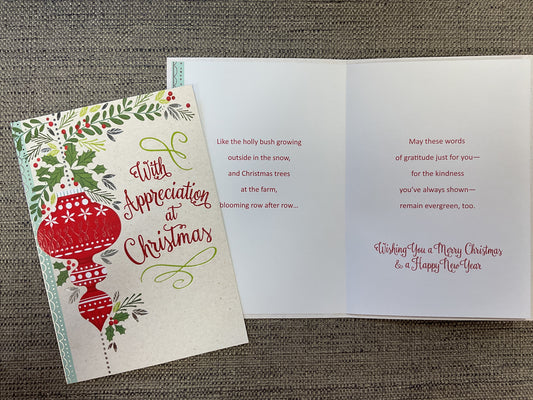 With
Appreciation
at
Christmas
Like the holly bush growing
outside in the snow,
and Christmas trees
at the farm,
blooming row after row...
May these words
of gratitude just for you—
for the kindness
you've always shown—
remain evergreen, too.
Wishing You a Merry Christmas
& a Happy New Year